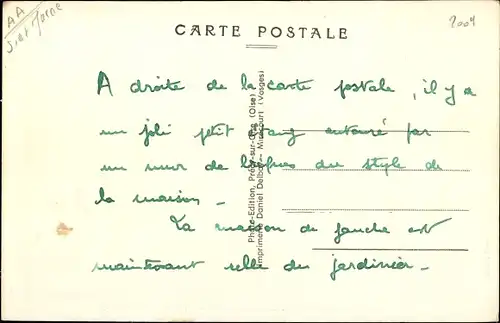 AA
CARTE POSTALE
2004
A droite de la carte postale, il y a
un joli petit étang entouré par
un mur de briques du style de
la maison -
La maison de gauche est
maintenant celle du jardinier -
Photo-Edition, Précy-sur-Oise (Oise)
Imprimerie Daniel Delboy - Mirecourt (Vosges)